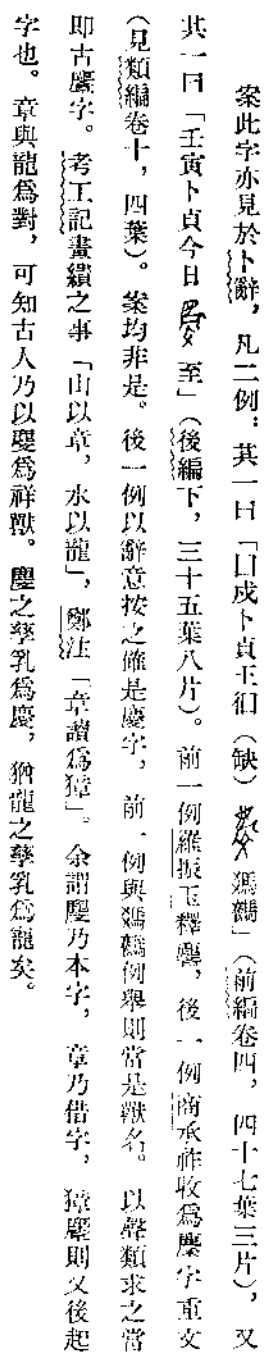 案此字亦見於卜辭，凡二例：其一曰「囗戌卜貞王徊（缺）䳍鷊」（前編卷四，四十七葉三片），又
其一曰「壬寅卜貞今日至」（後編下，三十五葉八片）。前一例羅振玉釋，後一例商承祚收為字重文
（見類編卷十，四葉）。案均非是。後一例以辭意按之確是慶字，前一例與鷊例舉則當是獸名。以聲類求之當
即古字。考工記畫繢之事「山以章，水以龍」，鄭注「章讀為獐」。余謂乃本字，章乃借字，獐則又後起
字也。章與龍為對，可知古人乃以為祥獸。之孳乳為慶，猶龍之孳乳為龍矣。